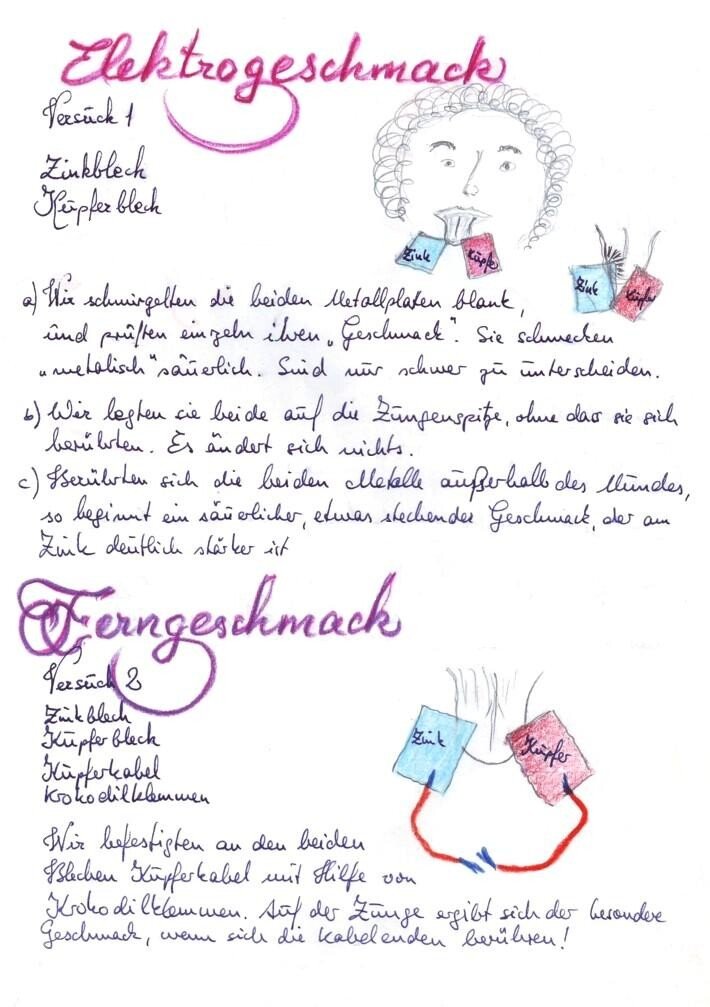 Elektrogeschmack
Versuch 1
Zinkblech
Kupferblech
Zink
Kupfer
Zink
Kupfer
a) Wir schmirgelten die beiden Metallplaten blank,
und prüften einzeln ihren „Geschmack". Sie schmecken
„metalisch" säuerlich. Sind nur schwer zu unterscheiden.
b) Wir legten sie beide auf die Zungenspitze, ohne das sie sich
berührten. Es ändert sich nichts.
c) Berührten sich die beiden Metalle außerhalb des Mundes,
so beginnt ein säuerlicher, etwas stechender Geschmack, der am
Zink deutlich stärker ist
Ferngeschmack
Versuch 2
Zinkblech
Kupferblech
Kupferkabel
Krokodilklemmen
Zink
Kupfer
Wir befestigten an den beiden
Blechen Kupferkabel mit Hilfe von
Krokodilklemmen. Auf der Zunge ergibt sich der besondere
Geschmack, wenn sich die Kabelenden berühren!